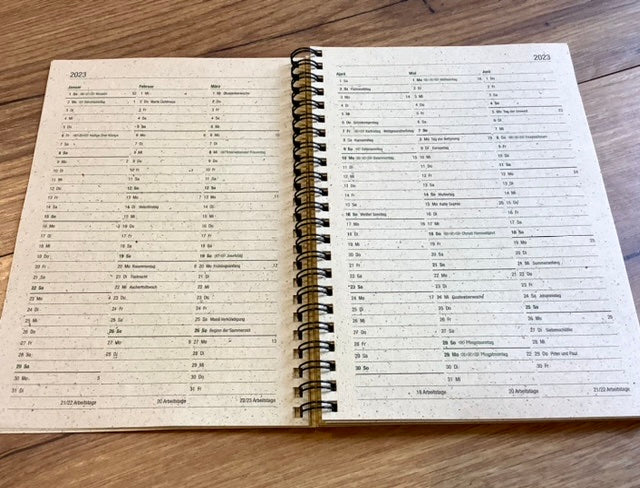 2023
Januar
1 So Neujahr
2 Mo Berchtoldstag
3 Di
4 Mi
5 Do
6 Fr Heilige Drei Könige
7 Sa
8 So
9 Mo
10 Di
11 Mi
12 Do
13 Fr
14 Sa
15 So
16 Mo
17 Di
18 Mi
19 Do
20 Fr
21 Sa
22 So
23 Mo
24 Di
25 Mi
26 Do
27 Fr
28 Sa
29 So
30 Mo
31 Di
21/22 Arbeitstage
Februar
1 Mi
2 Do Mariä Lichtmess
3 Fr
4 Sa
5 So
6 Mo
7 Di
8 Mi
9 Do
10 Fr
11 Sa
12 So
13 Mo
14 Di Valentinstag
15 Mi
16 Do
17 Fr
18 Sa
19 So
20 Mo Rosenmontag
21 Di Fastnacht
22 Mi Aschermittwoch
23 Do
24 Fr
25 Sa
26 So
27 Mo
28 Di
20 Arbeitstage
März
1 Mi
2 Do
3 Fr
4 Sa
5 So
6 Mo
7 Di
8 Mi Internationaler Frauentag
9 Do
10 Fr
11 Sa
12 So
13 Mo
14 Di
15 Mi
16 Do
17 Fr
18 Sa
19 So Josefstag
20 Mo Frühlingsanfang
21 Di
22 Mi
23 Do
24 Fr
25 Sa Mariä Verkündigung
26 So Beginn der Sommerzeit
27 Mo
28 Di
29 Mi
30 Do
31 Fr
22/23 Arbeitstage
2023
April
1 Sa
2 So Palmsonntag
3 Mo
4 Di
5 Mi
6 Do Gründonnerstag
7 Fr Karfreitag
8 Sa Karsamstag
9 So Ostersonntag
10 Mo Ostermontag
11 Di
12 Mi
13 Do
14 Fr
15 Sa
16 So Weißer Sonntag
17 Mo
18 Di
19 Mi
20 Do
21 Fr
22 Sa
23 So
24 Mo
25 Di
26 Mi
27 Do
28 Fr
29 Sa
30 So
18 Arbeitstage
Mai
1 Mo
2 Di
3 Mi
4 Do
5 Fr
6 Sa
7 So
8 Mo Tag der Befreiung
9 Di Europatag
10 Mi
11 Do
12 Fr
13 Sa
14 So Muttertag
15 Mo Kalte Sophie
16 Di
17 Mi
18 Do Christi Himmelfahrt
19 Fr
20 Sa
21 So
22 Mo
23 Di
24 Mi
25 Do
26 Fr
27 Sa
28 So Pfingstsonntag
29 Mo Pfingstmontag
30 Di
31 Mi
20 Arbeitstage
Juni
1 Do
2 Fr
3 Sa
4 So
5 Mo Tag der Umwelt
6 Di
7 Mi
8 Do Fronleichnam
9 Fr
10 Sa
11 So
12 Mo
13 Di
14 Mi
15 Do
16 Fr
17 Sa
18 So
19 Mo
20 Di
21 Mi Sommeranfang
22 Do
23 Fr
24 Sa Johannistag
25 So
26 Mo
27 Di Siebenschläfer
28 Mi
29 Do Peter und Paul
30 Fr
21/22 Arbeitstage